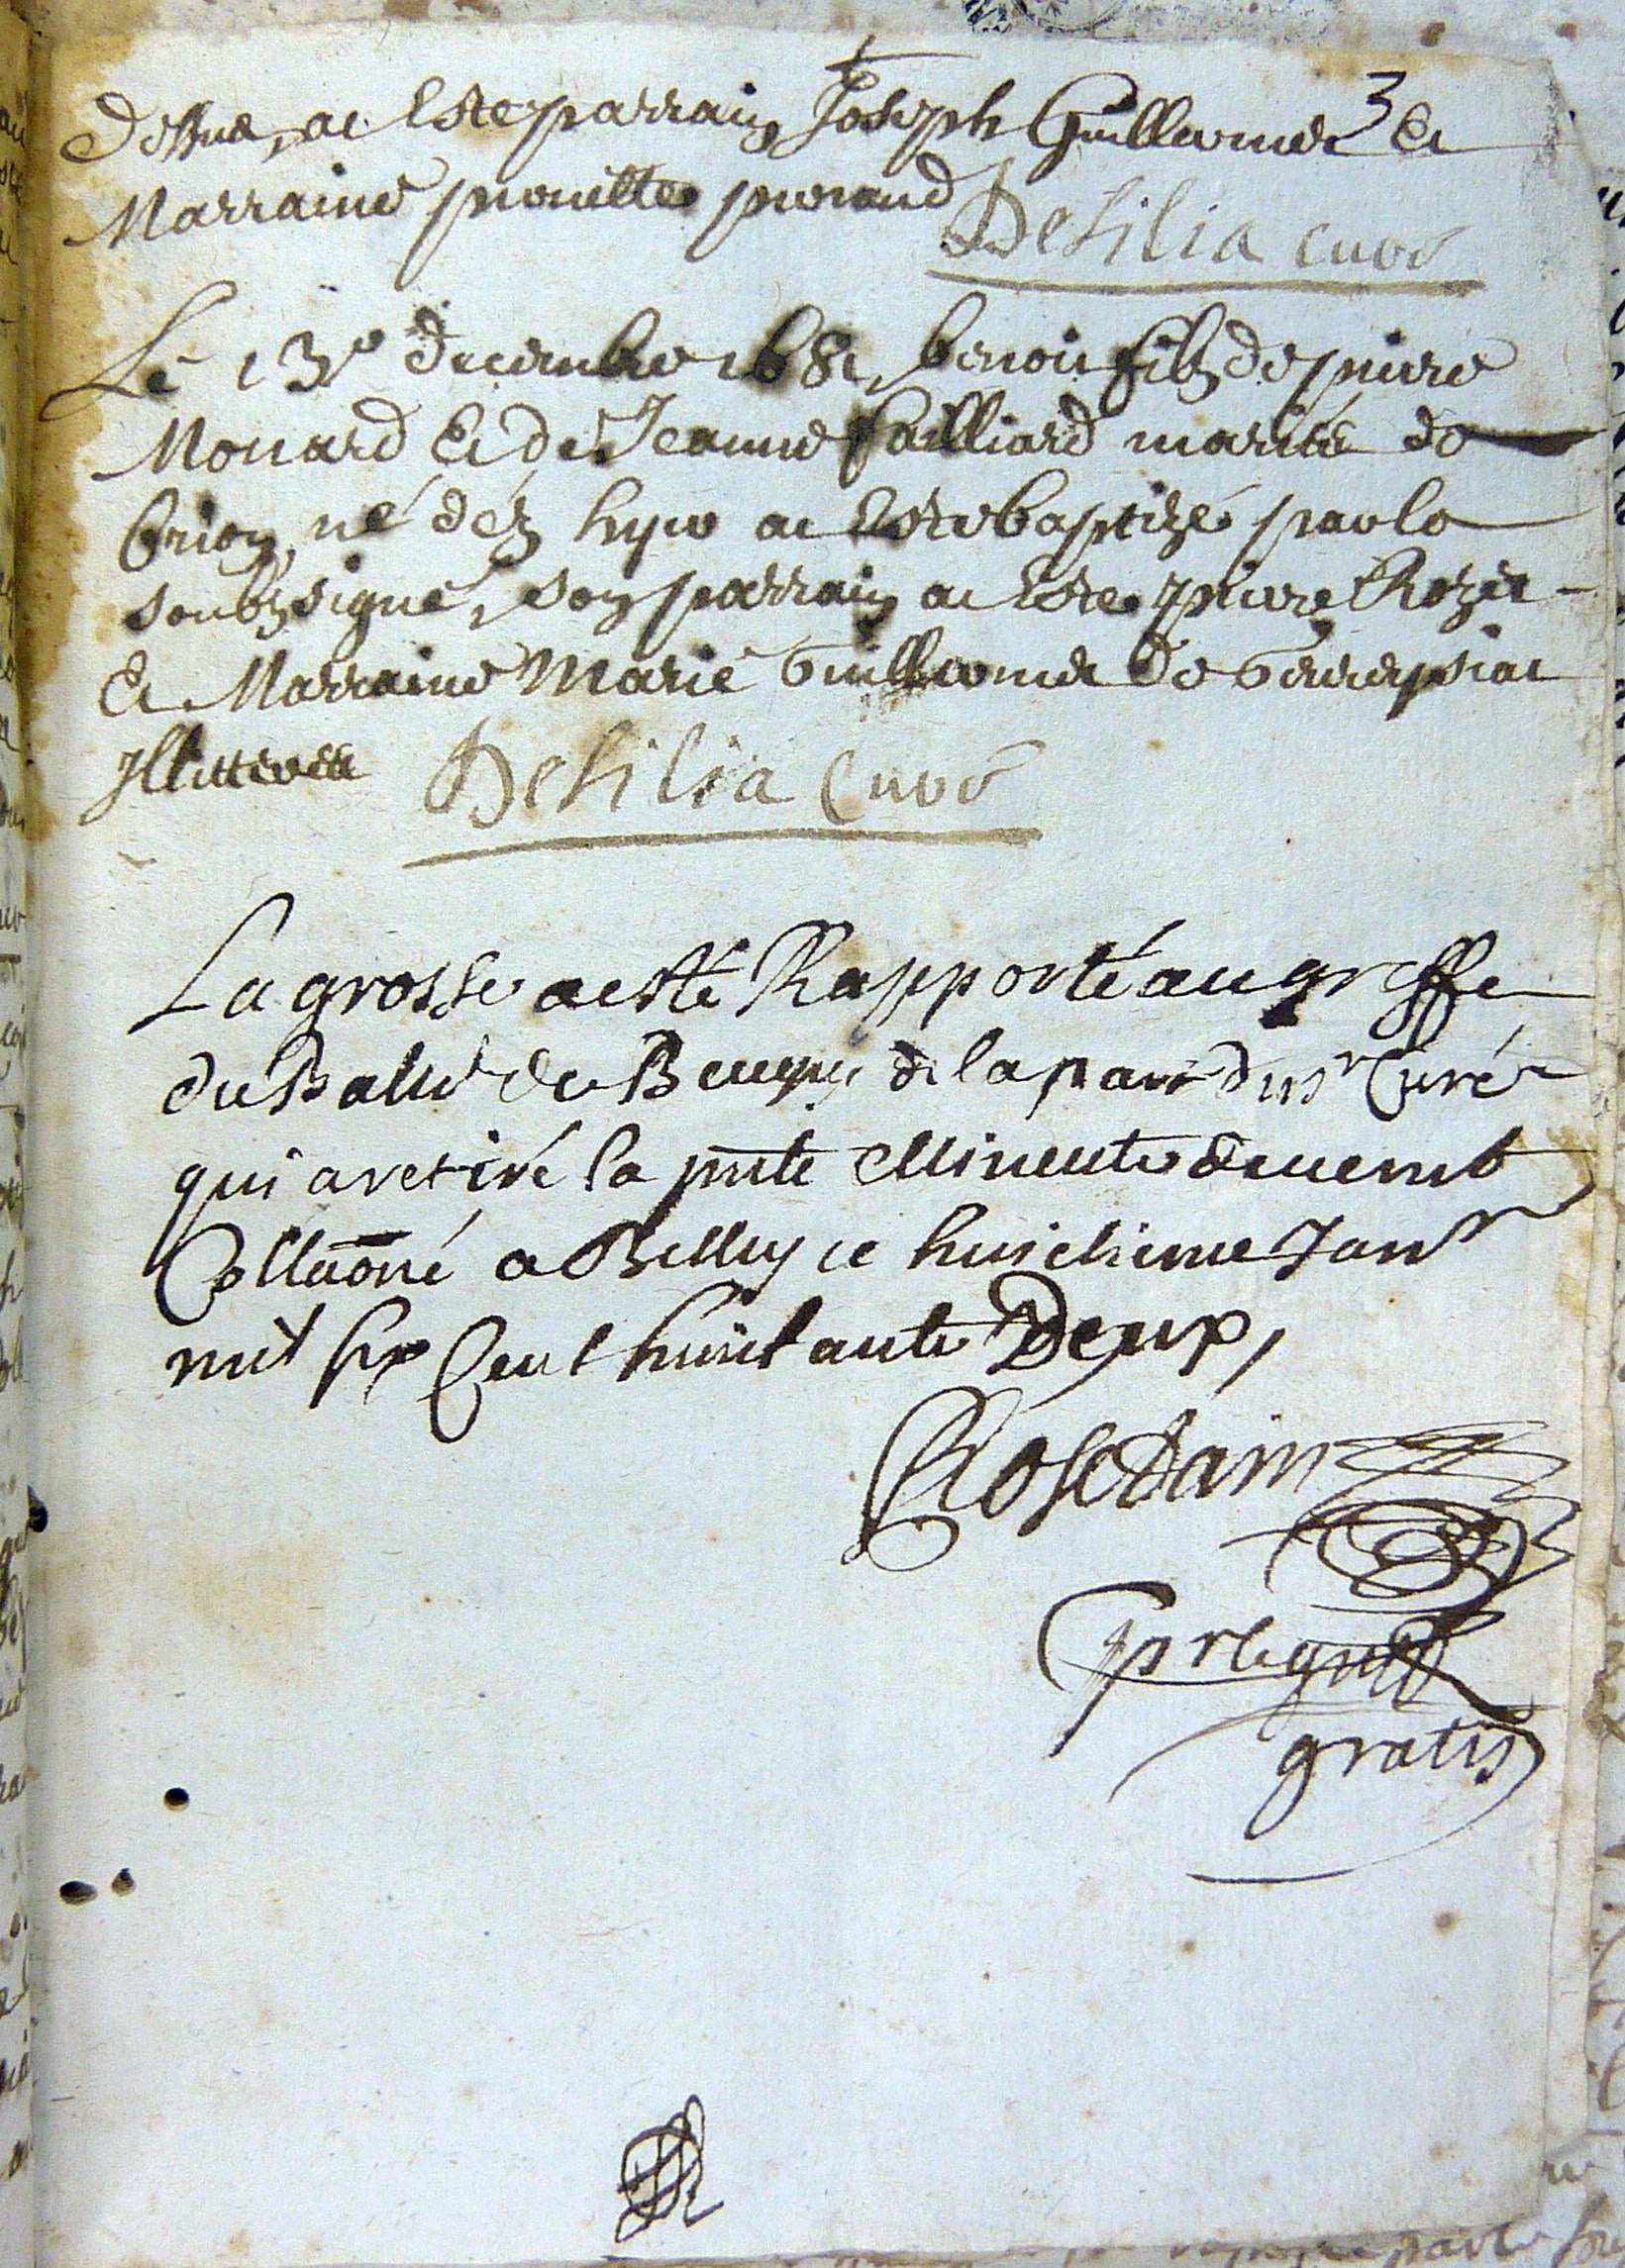 dessus, a este parrain Joseph Guillermet et
3
Marraine pernette
Desilia curé
Le 13e decembre 1681, benoit filz de pierre
Monard Et de Jeanne failliard mariés de
brion, né déz hyer a Este baptizé par le
soubzsigné, son parrain a Este pierre Rozet
Et Marraine Marie Guillermet de
Illitterés Desilia Curé
La grosse a esté Rapporté au greffe
du Balle de Beugey de la part du sr Curé
qui a retiré la pnte Minente deuemt
Collaoné a Belley ce huictieme Janr
mil six Cent huictante Deux,
Rosetdain
gratis